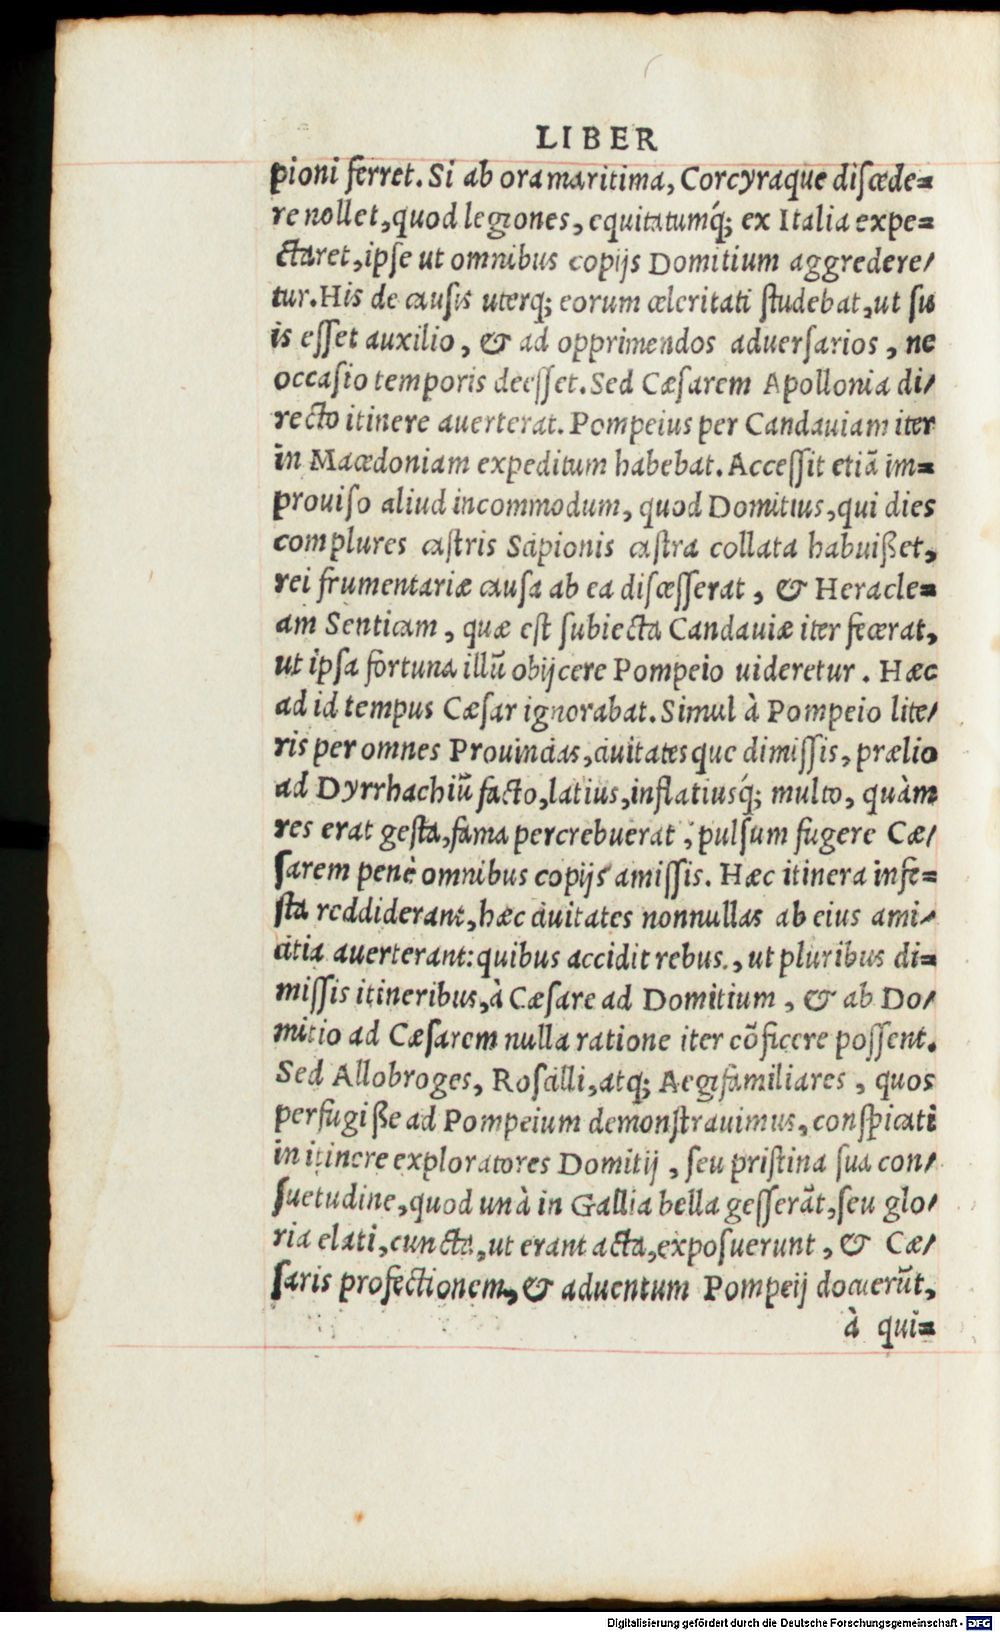 LIBER
pioni ferret. Si ab ora maritima, Corcyraque discede=
re nollet, quod legiones, equitatumq́; ex Italia expe=
ctaret, ipse ut omnibus copijs Domitium aggredere/
tur. His de causis uterq; eorum celeritati studebat, ut su
is esset auxilio, & ad opprimendos aduersarios, ne
occasio temporis deesset. Sed Cæsarem Apollonia di/
recto itinere auerterat. Pompeius per Candauiam iter
in Macedoniam expeditum habebat. Accessit etiã im=
prouiso aliud incommodum, quod Domitius, qui dies
complures castris Scipionis castra collata habuißet,
rei frumentariæ causa ab ea discesserat, & Heracle=
am Senticam, quæ est subiecta Candauiæ iter fecerat,
ut ipsa fortuna illũ obijcere Pompeio uideretur. Hæc
ad id tempus Cæsar ignorabat. Simul à Pompeio lite/
ris per omnes Prouincias, ciuitatesque dimissis, prælio
ad Dyrrhachiũ facto, latius, inflatiusq́; multo, quàm
res erat gesta, fama percrebuerat, pulsum fugere Cæ/
sarem penè omnibus copijs amissis. Hæc itinera infe=
sta reddiderant, hæc ciuitates nonnullas ab eius ami/
citia auerterant: quibus accidit rebus, ut pluribus di=
missis itineribus, à Cæsare ad Domitium, & ab Do/
mitio ad Cæsarem nulla ratione iter cõficere possent.
Sed Allobroges, Roscilli, atq; Aegi familiares, quos
perfugiße ad Pompeium demonstrauimus, conspicati
in itinere exploratores Domitij, seu pristina sua con/
suetudine, quod unà in Gallia bella gesserãt, seu glo/
ria elati, cuncta, ut erant acta, exposuerunt, & Cæ/
saris profectionem, & aduentum Pompeij docuerũt,
à qui=
Digitalisierung gefördert durch die Deutsche Forschungsgemeinschaft - DFG